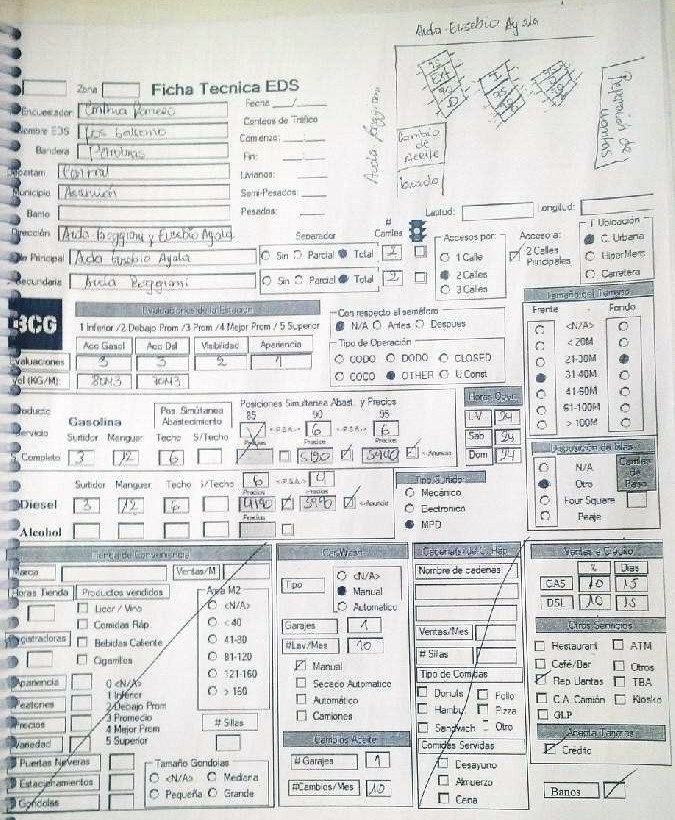 Avda. Eusebio Ayala
Zona
Ficha Tecnica EDS
Encuestador Cinthia Romero Fecha __/__/__
Nombre EDS Los Conteos de Tráfico
Bandera Petrobras Comenzo:
Central Fin:
Livianos:
Municipio Asunción Semi-Pesados:
Barrio Pesados:
Avda Boggiani
Cambio de Aceite
lavado
Reparación de
Latitud: Longitud:
Dirección Avda. Boggiani y Eusebio Ayala
Separador # Carriles
Principal Avda Eusebio Ayala Sin Parcial Total 2
Secundaria Avda Boggiani Sin Parcial Total 2
Accesos por:
1 Calle
2 Calles
3 Calles
Acceso a:
2 Calles Principales
Ubicación
C. Urbana
HiperMerc
Carretera
BCG
Evaluaciones de la Estacion
1 Inferior /2 Debajo Prom /3 Prom /4 Mejor Prom / 5 Superior
Acc Gasol Acc Dsl Visibilidad Apariencia
Evaluaciones 3 3 2
Vol (KG/M): 80M3 70M3
Con respecto al semáforo
N/A Antes Despues
Tipo de Operación
CODO DODO CLOSED
COCO OTHER U Const
Tamaño del Terreno
Frente Fondo
<N/A>
< 20M
21-30M
31-40M
41-60M
61-100M
> 100M
Producto Gasolina Pos. Simúltanea Abastecimiento
Posiciones Simultanea Abast. y Precios
85 90 95
Servicio Surtidor Manguer Techo S/Techo
6 6
Precios Precios Precios
Completo 3 12 6 5190 <-Anuncio
Horas Oper.
L-V 24
Sab 24
Dom 24
Surtidor Manguer Techo s/Techo 6 4
Precios Precios
Diesel 3 12 6 <-Anuncio
Precios
Alcohol
Tipo Surtidor
Mecánico
Electronico
MPD
Disposición de Islas
N/A
Otro
Four Square
Peaje
Carriles de Paso
Tienda de Conveniencia
Marca Ventas/M
Horas Tienda Productos vendidos
Licor / Vino
Comidas Ráp.
Registradoras Bebidas Caliente
Cigarrillos
Area M2
<N/A>
< 40
41-80
81-120
121-160
> 160
# Sillas
Apariencia 0 <N/A>
1 Inferior
Peatones 2 Debajo Prom
Precios 3 Promedio
4 Mejor Prom
Variedad 5 Superior
Puertas Neveras
Estacionamientos
Gondolas
Tamaño Gondolas
<N/A> Mediana
Pequeña Grande
Car Wash
Tipo
<N/A>
Manual
Automatico
Garajes 1
#Lav/Mes 10
Manual
Secado Automatico
Automático
Camiones
Cambios Aceite
# Garajes 1
#Cambios/Mes 10
Nombre de cadenas:
Ventas/Mes
# Sillas
Tipo de Comidas
Donuts Pollo
Hambu Pizza
Sandwich Otro
Comidas Servidas
Desayuno
Almuerzo
Cena
Ventas a Crédito
% Dias
GAS 10 15
DSL 10 15
Otros Servicios
Restaurant ATM
Café/Bar Otros
Rep Llantas TBA
C.A. Camión Kiosko
GLP
Acepta Tarjetas
Crédito
Banos